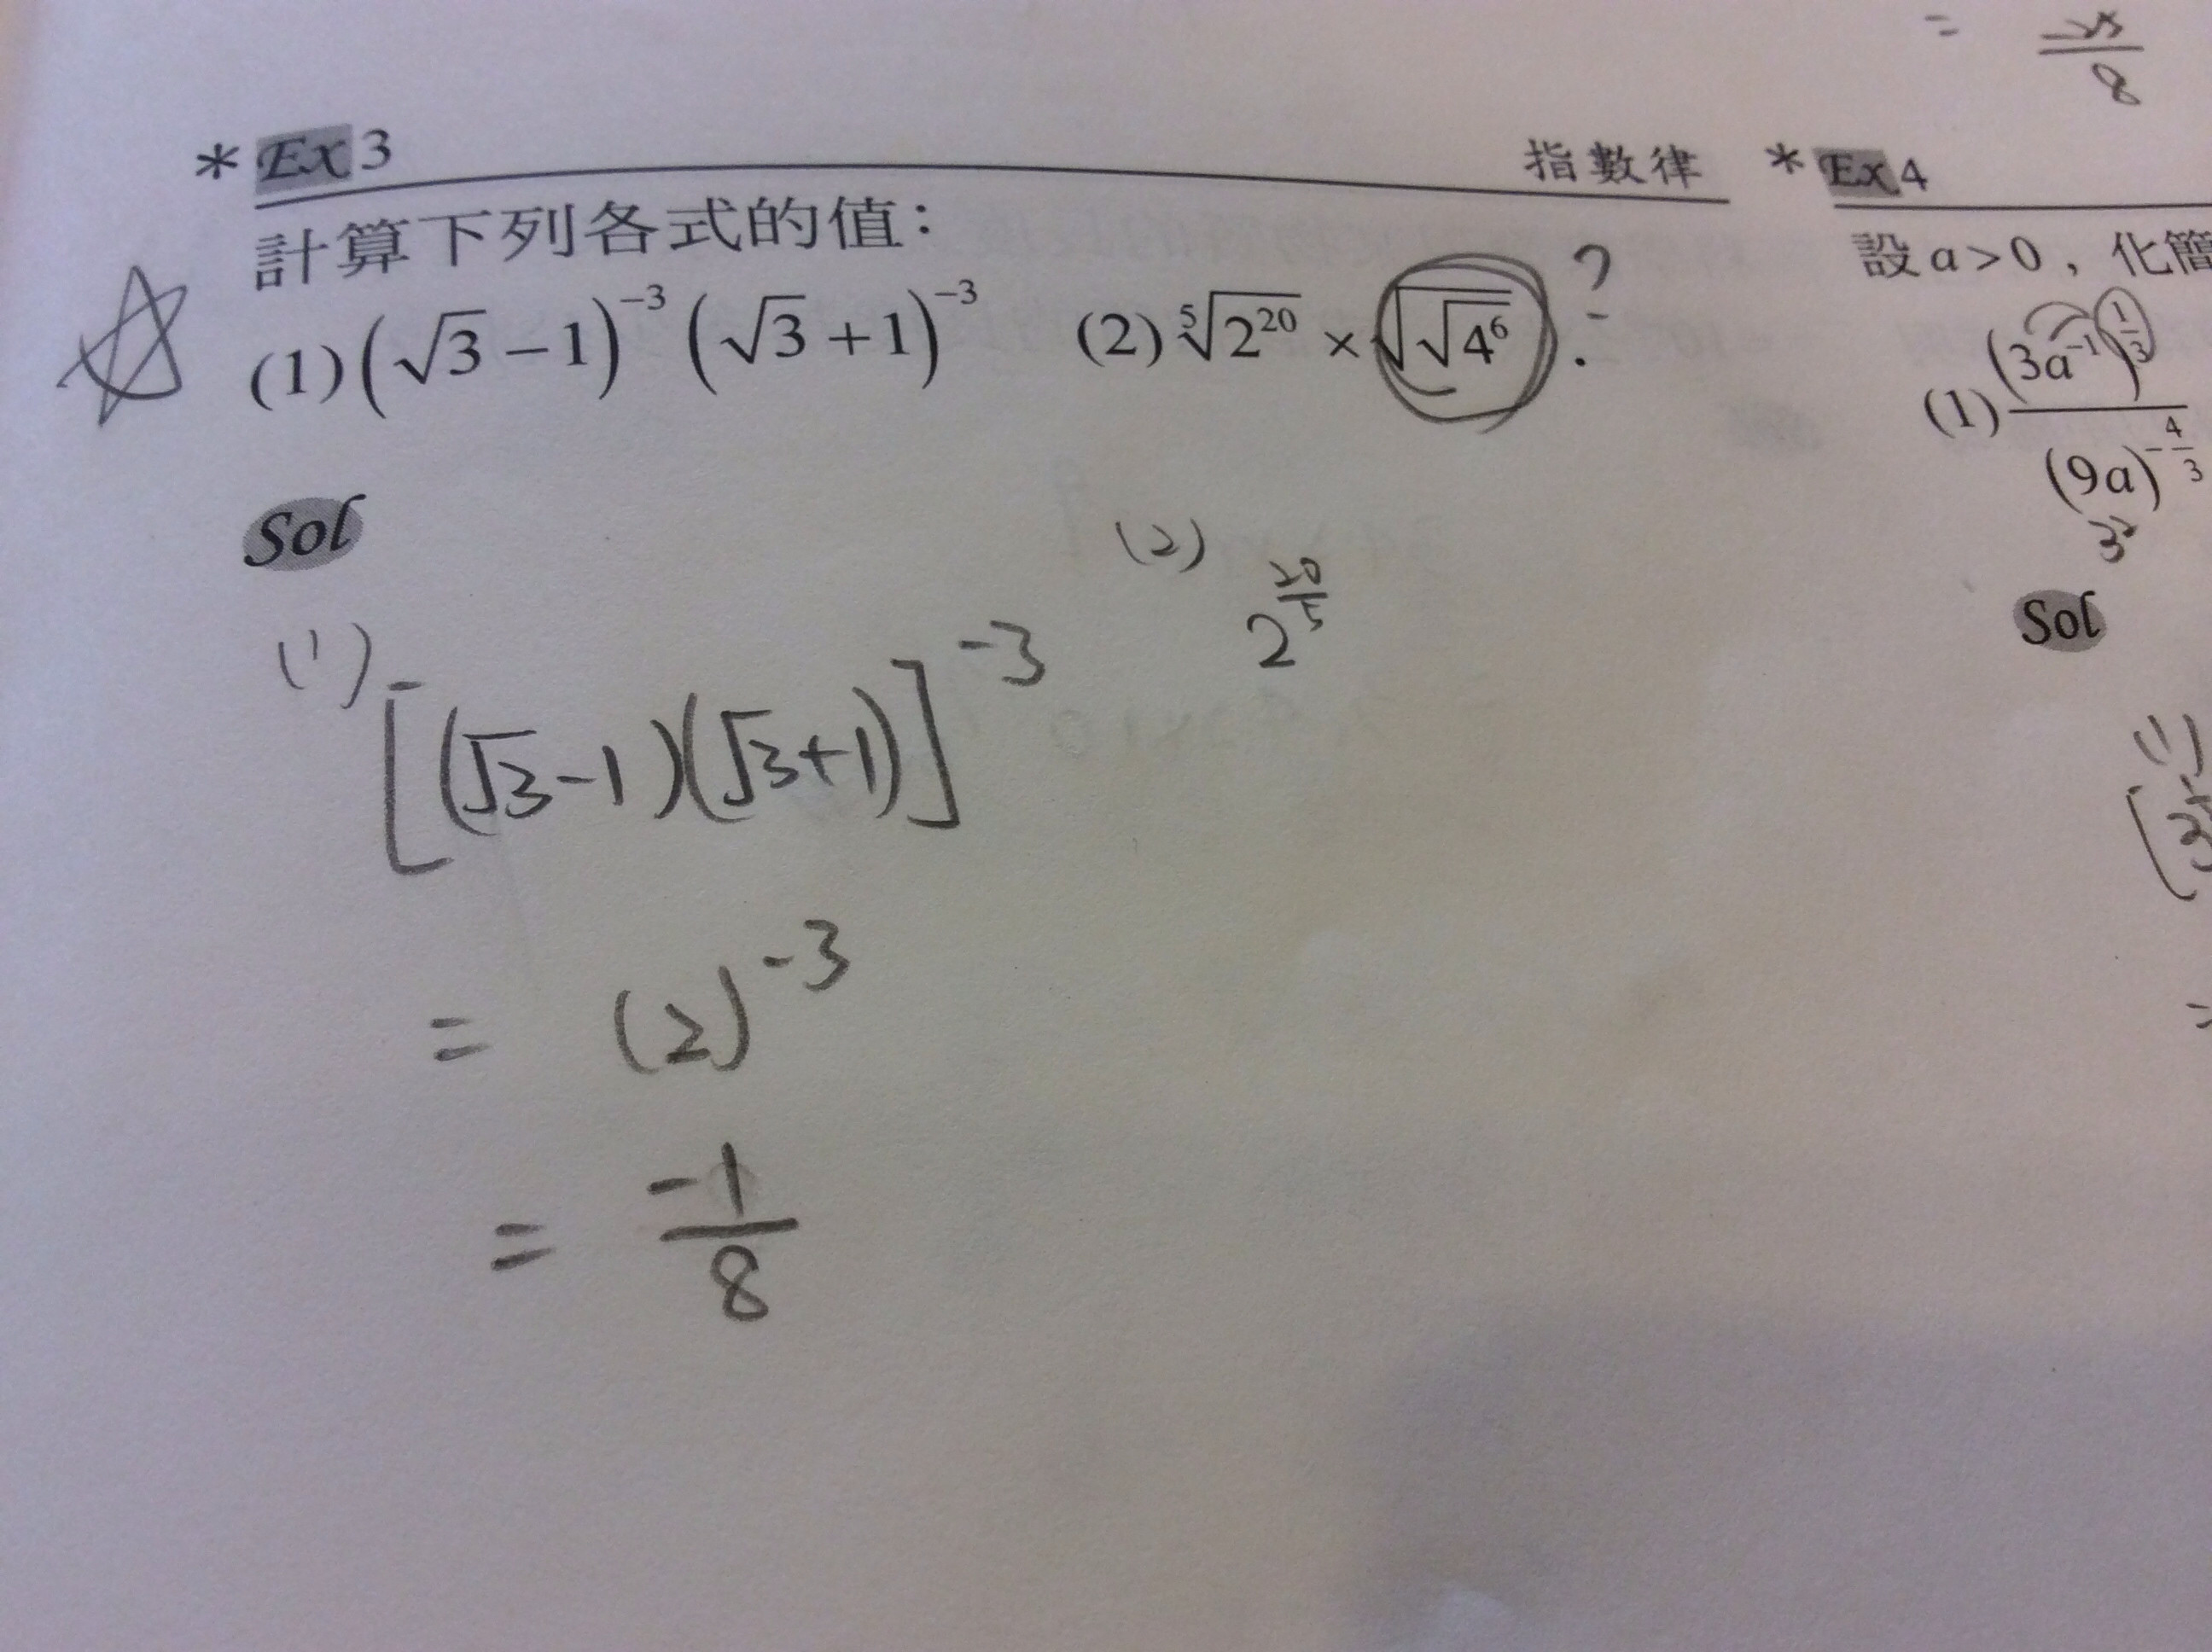 = 
8
* Ex 3 指數律
計算下列各式的值:
(1) (√3 − 1)⁻³ (√3 + 1)⁻³ (2) ⁵√2²⁰ × √√4⁶ . ?
Sol
(1) [(√3-1)(√3+1)]⁻³
= (2)⁻³
= -1/8
(2) 2^(20/5)
* Ex 4
設 a > 0 , 化簡
(1) (3a⁻¹)^(1/3) / (9a)^(-4/3)
3²
Sol
(1)
=